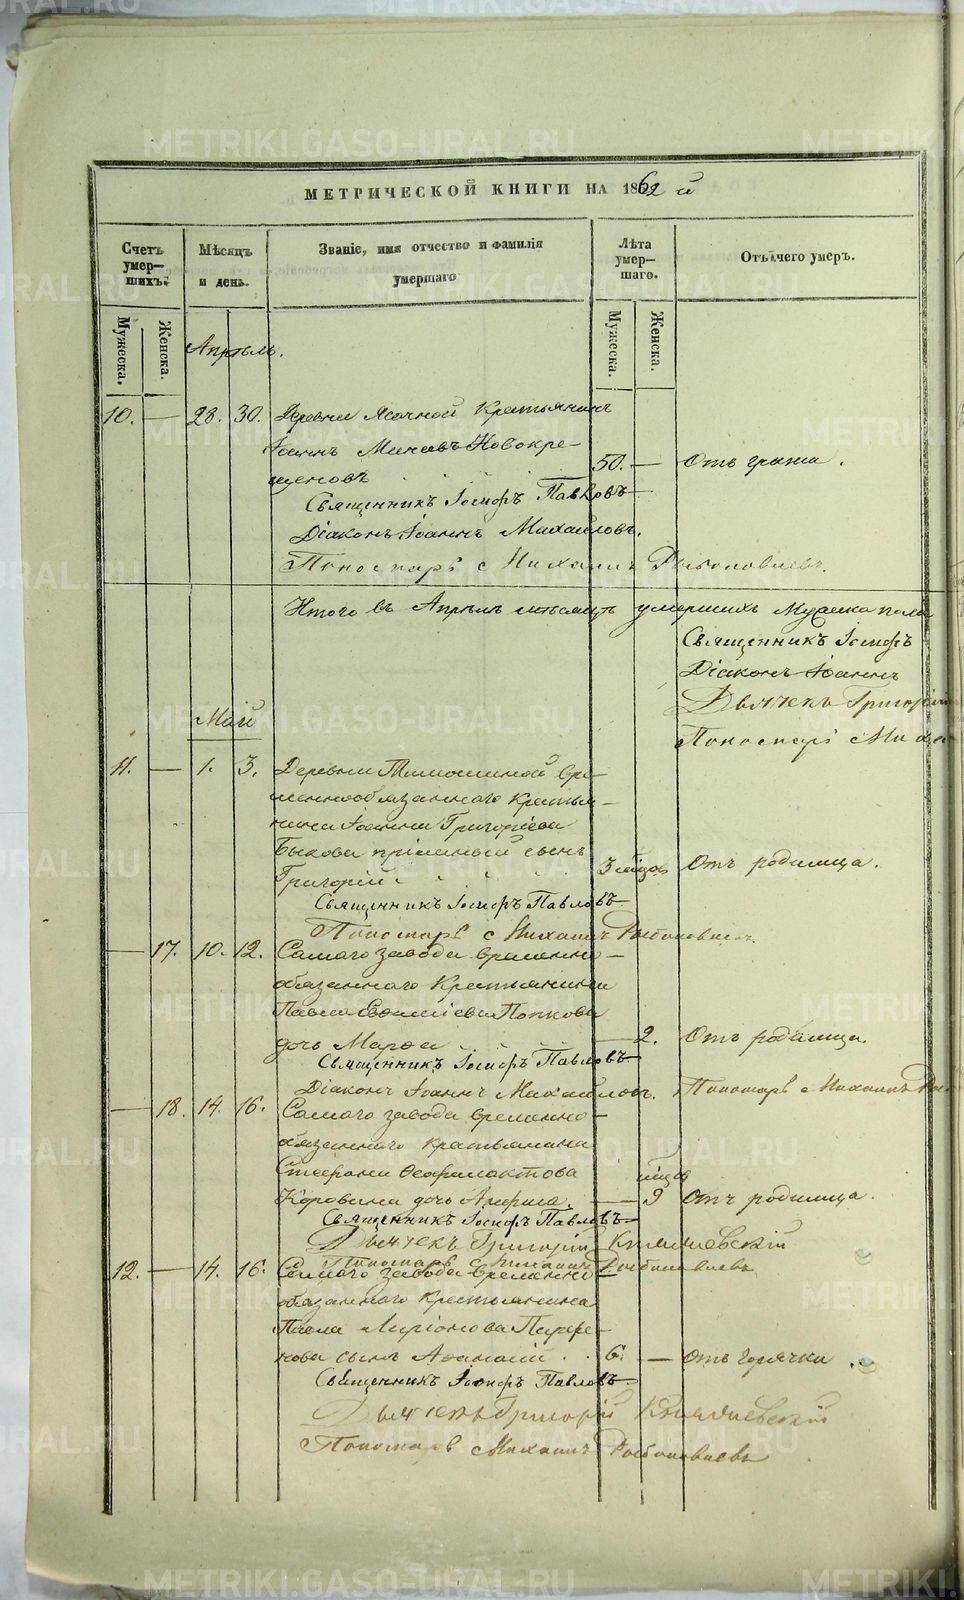 МЕТРИЧЕСКОЙ КНИГИ НА 1862 й
Счетъ умер-шихъ.
Мѣсяцъ и день.
Званіе, имя отчество и фамилія умершаго
Лѣта умер-шаго.
Отъ чего умеръ.
Мужеска.
Женска.
Мужеска.
Женска.
Апрѣль.
10. — 28. 30. Деревни Ясачной Крестьянинъ
Іоаннъ Минаевъ Новокре-
щеновъ 50. — Отъ грыжи.
Священникъ Іосифъ Павловъ
Діаконъ Іоаннъ Михайловъ.
Пономарь Михаилъ
Итого въ Апрѣлѣ мѣсяцѣ умершихъ Мужеска пола
Священникъ Іосифъ
Діаконъ Іоаннъ
Дьячекъ Григорій
Пономарь
Май
11. — 1. 3. Деревни Тимошиной вре-
меннообязаннаго Крестья-
нина Іоанна Григоріева
Быкова пріемный сынъ
Григорій 3 мѣсяц. Отъ родимца.
Священникъ Іосифъ Павловъ
Пономарь Михаилъ
— 17. 10. 12. Самаго завода временно-
обязаннаго Крестьянина
Павла Евфиміева Попкова
дочь Марѳа — 2. Отъ родимца.
Священникъ Іосифъ Павловъ
Діаконъ Іоаннъ Михайловъ. Пономарь Михаилъ
— 18. 14. 16. Самаго завода временно-
обязаннаго Крестьянина
Стефана Ѳеофилактова мѣсяц
Коровина дочь — 9 Отъ родимца.
Священникъ Іосифъ Павловъ
Дьячекъ Григорій
Пономарь Михаилъ
12. — 14. 16. Самаго завода временно
обязаннаго Крестьянина
Павла Ларіонова Парфе-
нова сынъ Аѳанасій 6. — Отъ горячки.
Священникъ Іосифъ Павловъ
Дьячекъ Григорій
Пономарь Михаилъ
METRIKI.GASO-URAL.RU